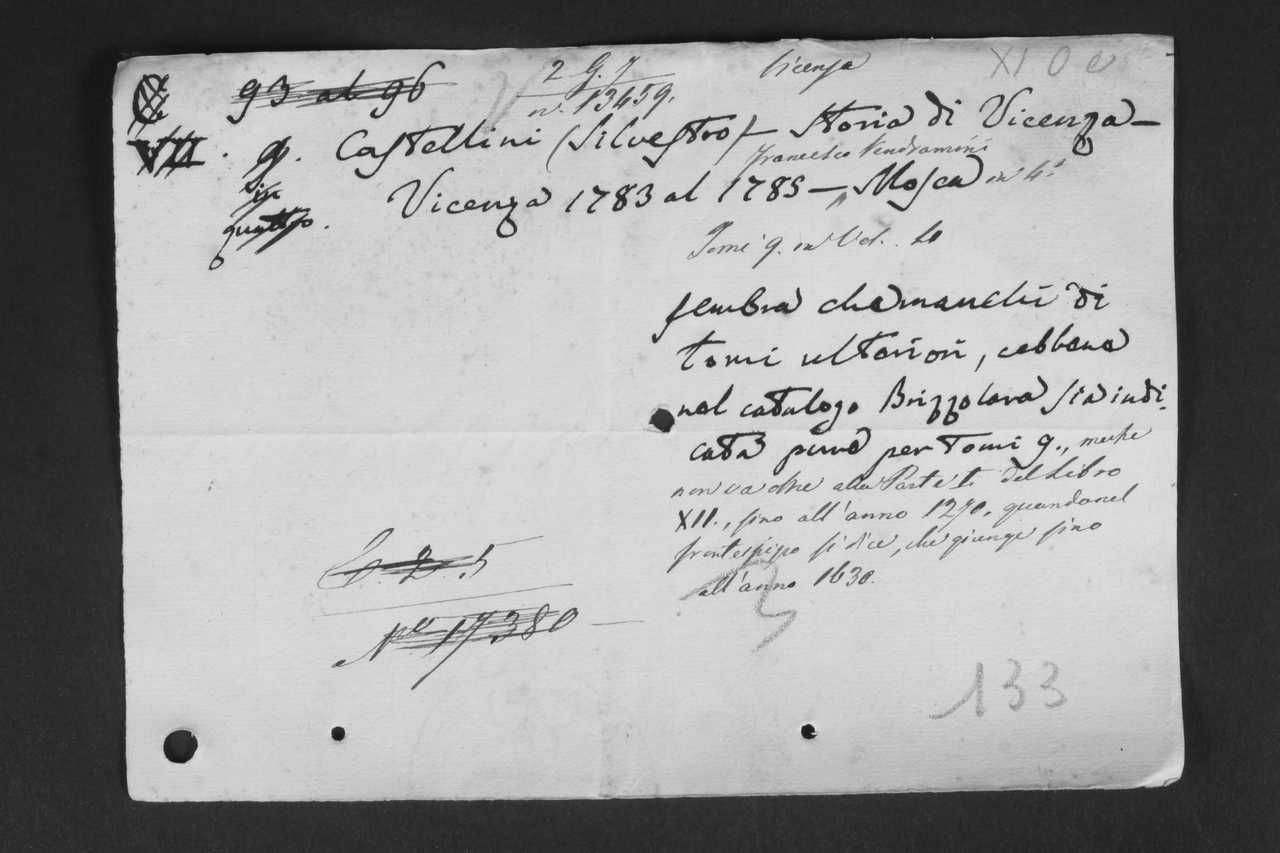 93 al 96
2 9. 7
n. 13459.
Vicenza
XI O e
VII. g. Castellini (Silvestro) — Storia di Vicenza —
Francesco Vendramini
Vicenza 1783 al 1785 — Mosca in 4°
Tomi 9. in Vol. 4
sembra che manchi di
tomi ulteriori, ebbene
nel catalogo Brizzolara sia indi-
cata pure per tomi 9., ma che
non va che alla Parte I. del Libro
XII., fino all'anno 1270. quando nel
frontespizo si dice, che giunge fino
all'anno 1630.
C 2. 5
N.° 17380
133